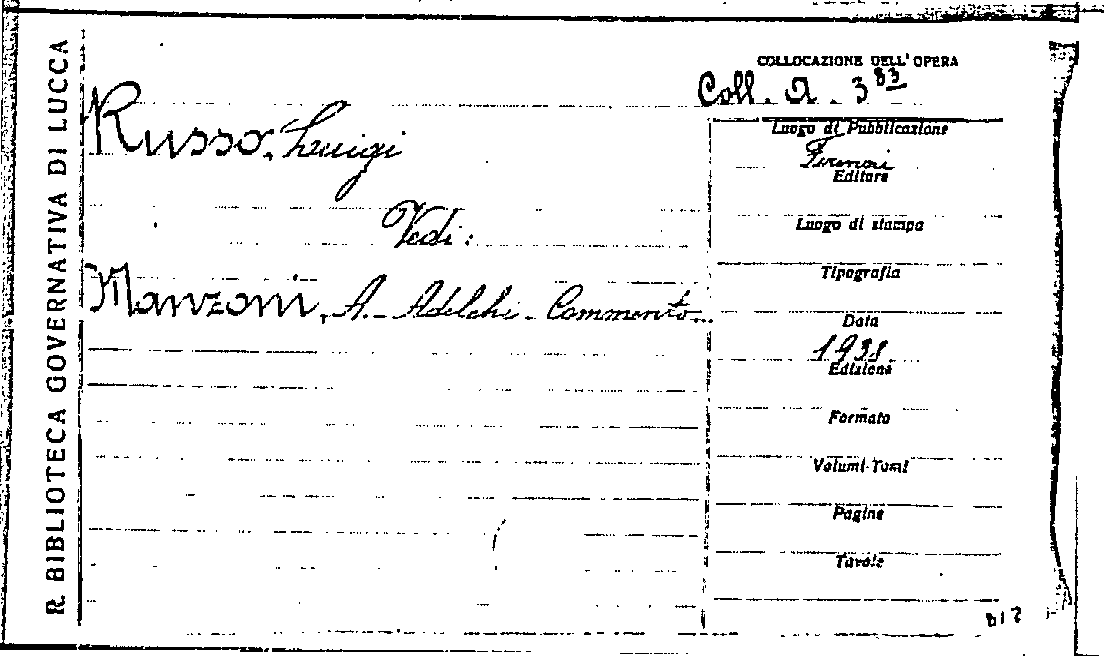 R. BIBLIOTECA GOVERNATIVA DI LUCCA
COLLOCAZIONE DELL' OPERA
Coll. A. 3 83
Russo, Luigi
Vedi:
Manzoni, A. - Adelchi - Commento..
Luogo di Pubblicazione
Editore
Luogo di stampa
Tipografia
Data
1938
Edizione
Formato
Volumi-Tomi
Pagine
Tavole